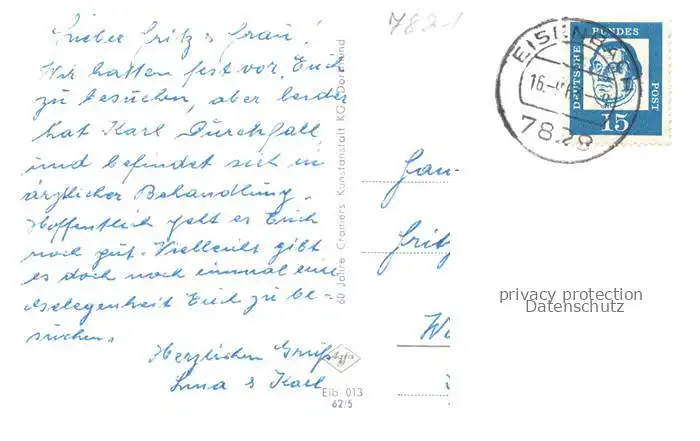 7821
Lieber Fritz & Frau!
Wir hatten fest vor, Euch
zu besuchen, aber leider
hat Karl Durchfall
und befindet sich in
ärztlicher Behandlung.
Hoffentlich geht es Euch
noch gut. Vielleicht gibt
es doch noch einmal eine
Gelegenheit Euch zu be=
suchen.
Herzlichen Gruß
& Karl
60 Jahre Cramers Kunstanstalt KG, Dortmund
Eib 013
62/5
Fritz
EISENBACH
16.
7828
DEUTSCHE BUNDES POST
15
privacy protection
Datenschutz